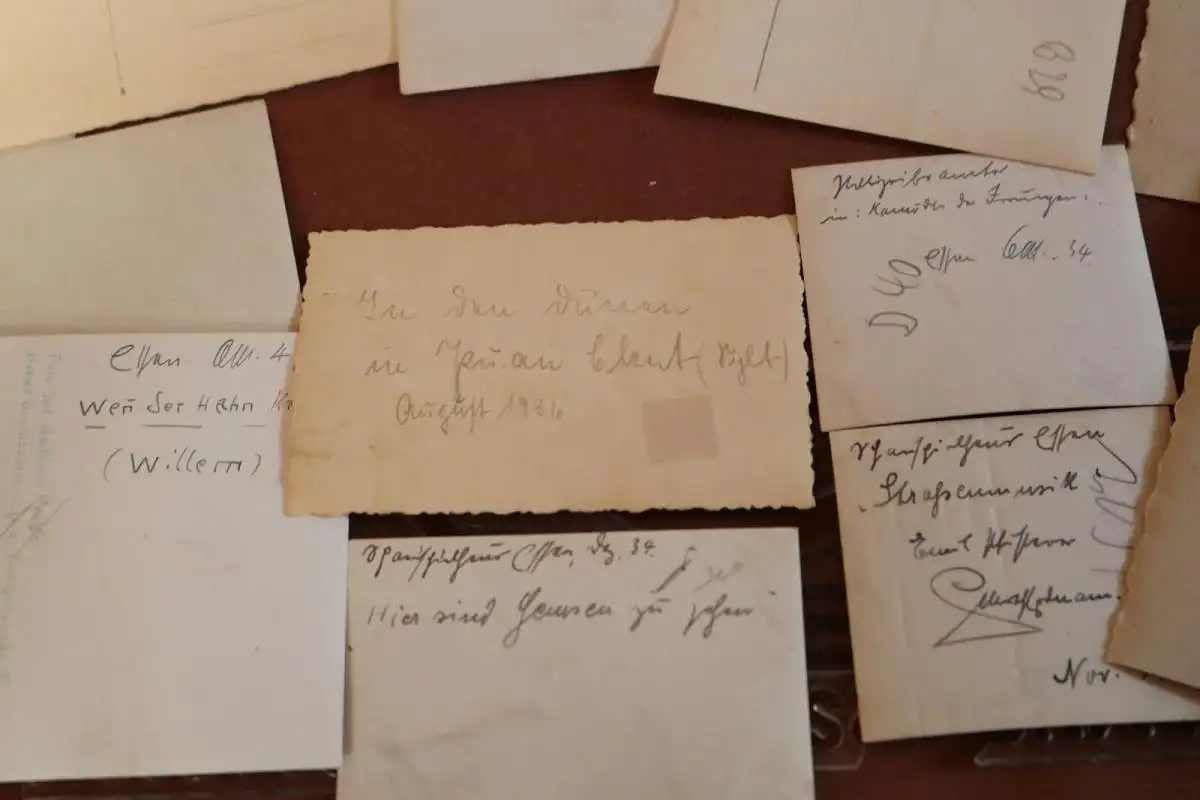 Essen Okt. 4
Wen der Hahn Kr
(Willem)
In den Dünen
in Puan Klent (Sylt)
August 1936
Schauspielhaus Essen, Dez. 34.
Hier sind Gemsen zu sehen
Polizeibeamter
in: Komödie der Irrungen.
Essen Okt. 34.
D 40
Schauspielhaus Essen
"Straßenmusik
Emil
Nov.